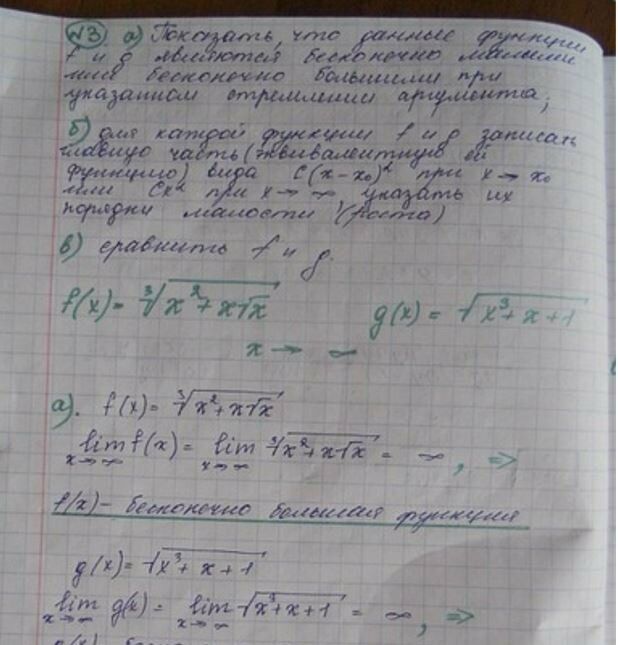 №3. а) Показать, что данные функции
f и g являются бесконечно малыми
или бесконечно большими при
указанном стремлении аргумента;
б) для каждой функции f и g записать
главную часть (эквивалентную ей
функцию) вида C(x-x₀)^α при x → x₀
или Cx^α при x → ∞, указать их
порядки малости (роста)
в) сравнить f и g.
f(x) = ∛(x²+x√x) g(x) = √(x³+x+1)
x → ∞
а). f(x) = ∛(x²+x√x)
lim f(x) = lim ∛(x²+x√x) = ∞, ⇒
x→∞ x→∞
f(x) - бесконечно большая функция
g(x) = √(x³+x+1)
lim g(x) = lim √(x³+x+1) = ∞, ⇒
x→∞ x→∞